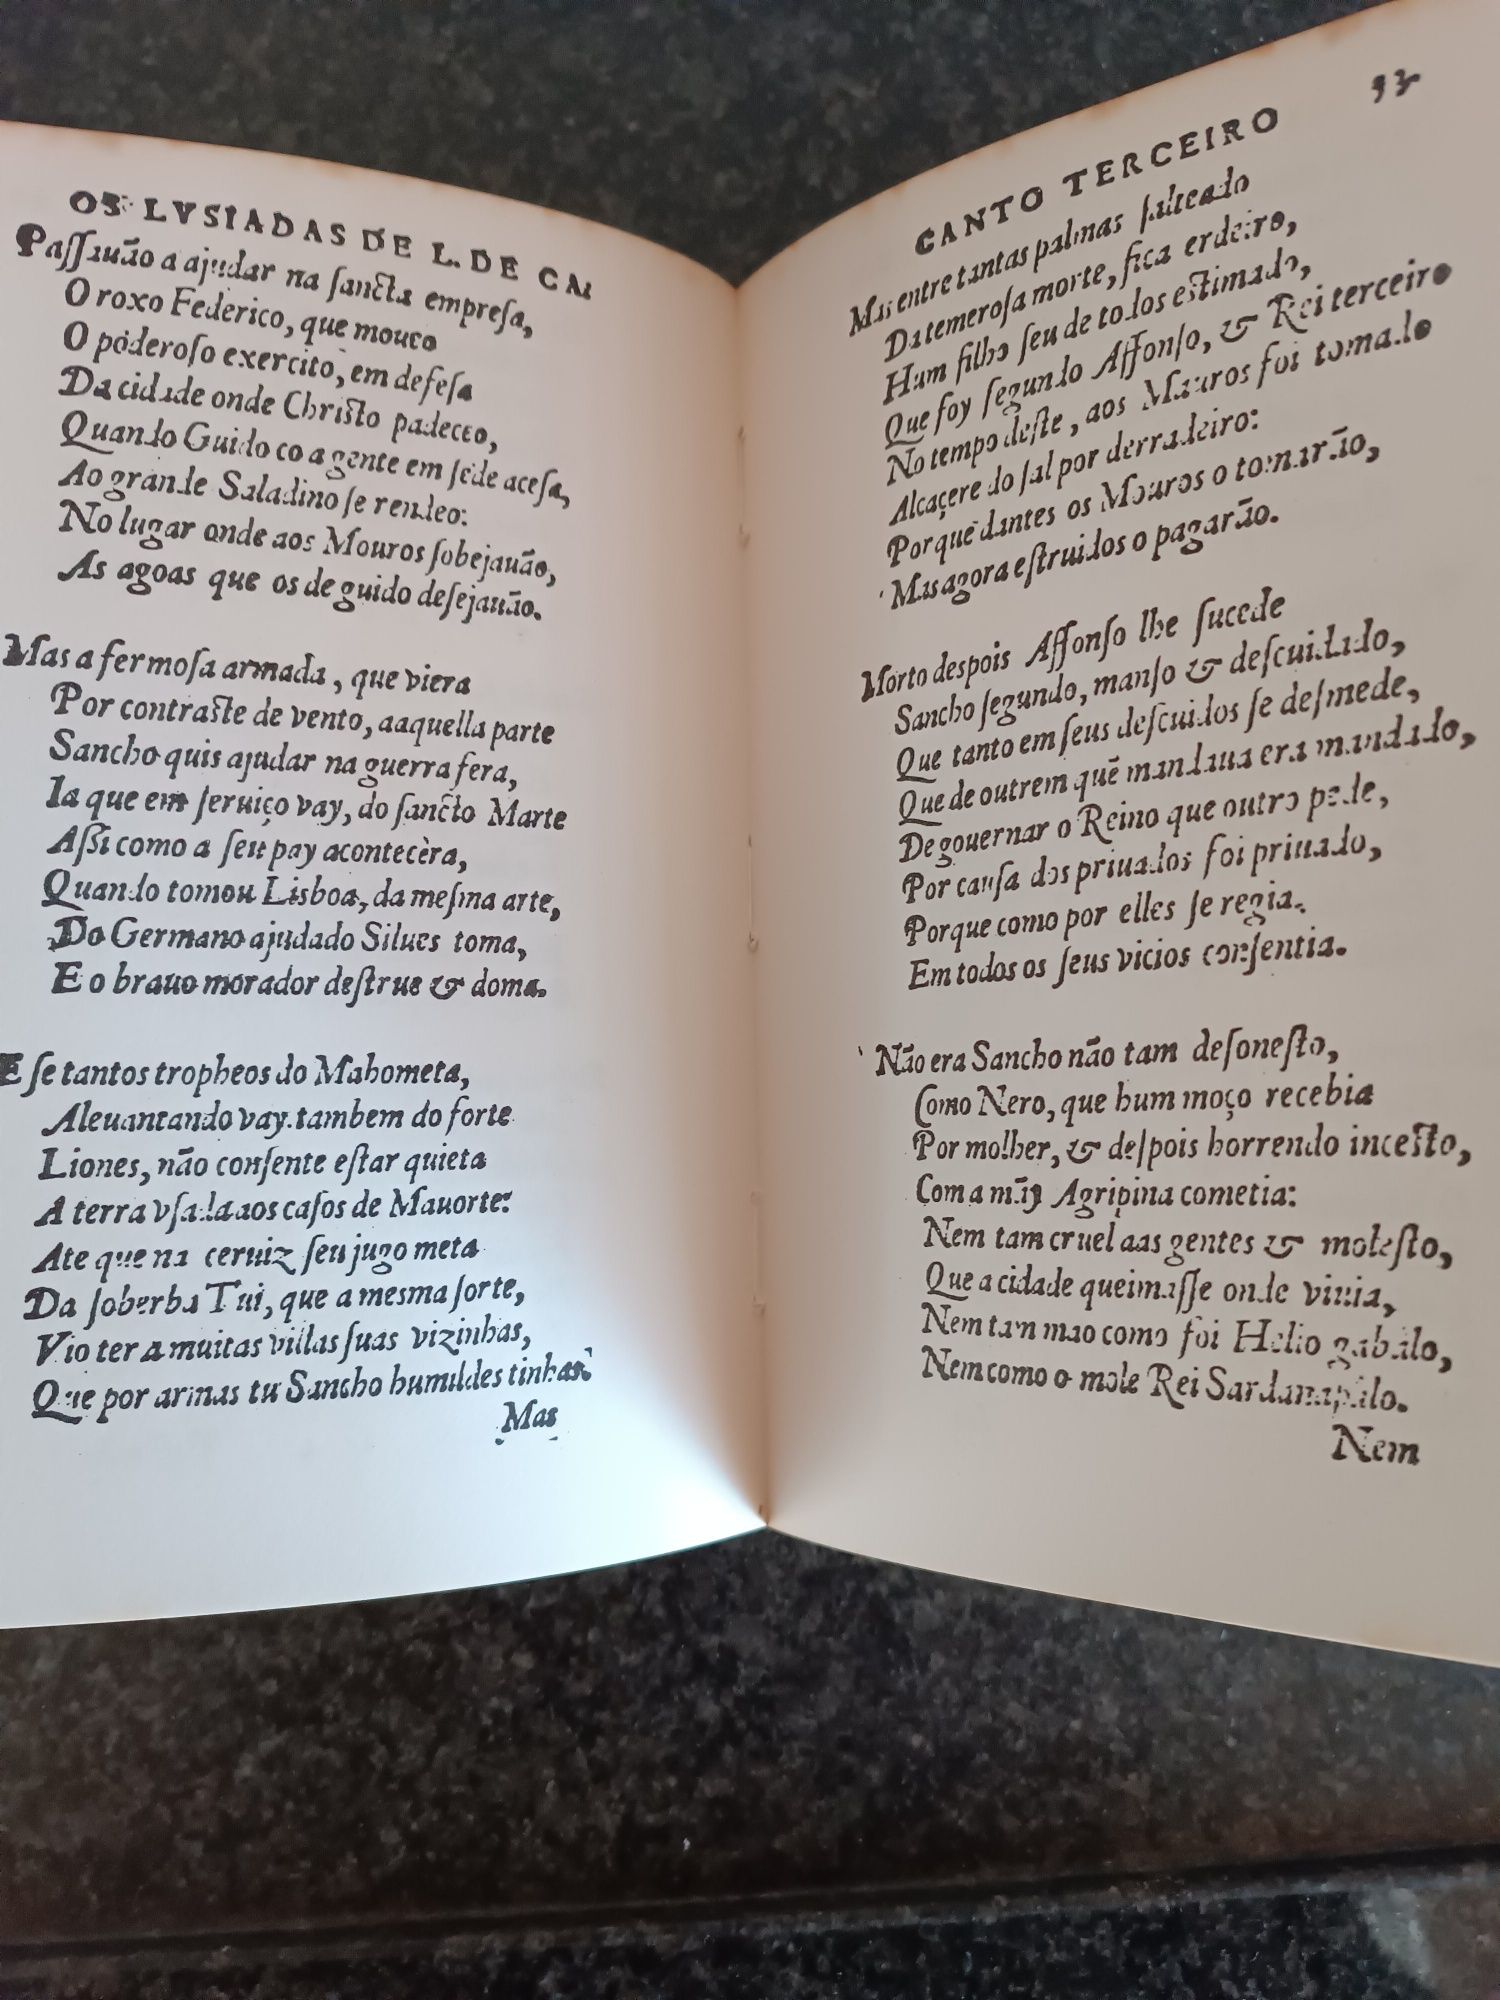 OS LVSIADAS DE L. DE CA
Paſſauão a ajudar na ſancta empreſa,
O roxo Federico, que moueo
O poderoſo exercito, em defeſa
Da cidade onde Chriſto padeceo,
Quando Guido co a gente em ſede aceſa,
Ao grande Saladino ſe rendeo:
No lugar onde aos Mouros ſobejauão,
As agoas que os de guido deſejauão.
Mas a fermoſa armada, que viera
Por contraſte de vento, aaquella parte
Sancho quis ajudar na guerra fera,
Ia que em ſeruiço vay, do ſancto Marte
Aſsi como a ſeu pay acontecèra,
Quando tomou Lisboa, da meſma arte,
Do Germano ajudado Silues toma,
E o brauo morador deſtrue & doma.
E ſe tantos tropheos do Mahometa,
Aleuantando vay, tambem do forte
Liones, não conſente eſtar quieta
A terra vſada aos caſos de Mauorte:
Ate que na ceruiz ſeu jugo meta
Da ſoberba Tui, que a mesma ſorte,
Vio ter a muitas villas ſuas vizinhas,
Que por armas tu Sancho humildes tinhas.
Mas
CANTO TERCEIRO
Mas entre tantas palmas ſalteado
Da temeroſa morte, fica erdeiro,
Hum filho ſeu de todos eſtimado,
Que foy ſegundo Affonſo, & Rei terceiro
No tempo deſte, aos Mauros foi tomado
Alcaçere do ſal por derradeiro:
Porque dantes os Mouros o tomarão,
Mas agora eſtruidos o pagarão.
Morto despois Affonſo lhe ſucede
Sancho ſegundo, manſo & deſcuidado,
Que tanto em ſeus deſcuidos ſe deſmede,
Que de outrem quẽ mandaua era mandado,
De gouernar o Reino que outro pede,
Por cauſa dos priuados foi priuado,
Porque como por elles ſe regia,
Em todos os ſeus vicios conſentia.
Não era Sancho não tam deſoneſto,
Como Nero, que hum moço recebia
Por molher, & deſpois horrendo inceſto,
Com a mãy Agripina cometia:
Nem tam cruel aas gentes & moleſto,
Que a cidade queimaſſe onde viuia,
Nem tam mao como foi Heliogabalo,
Nem como o mole Rei Sardanapalo.
Nem